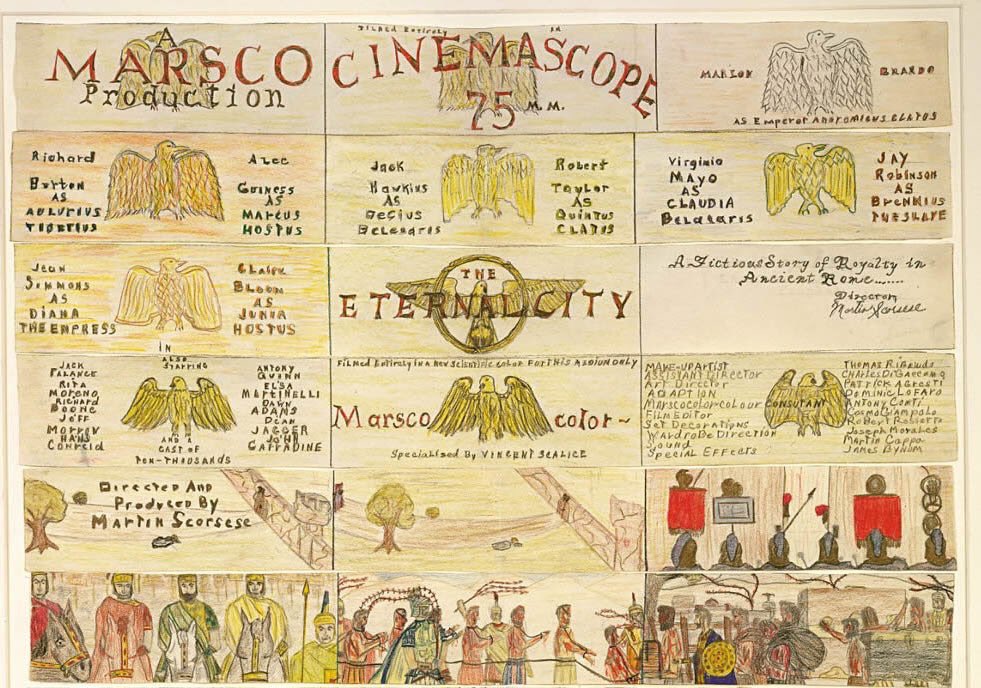 A
MARSCO
Production
Filmed Entirely in
CINEMASCOPE
75 M.M.
MARLON BRANDO
AS Emperor Andromicus CLATUS
Richard
Burton
AS
AULURIUS
TIBERIUS
Alec
Guiness
AS
MARCUS
HOSTUS
Jack
Hawkins
AS
Decius
Belesaris
Robert
Taylor
AS
Quintus
CLATUS
Virginia
Mayo
AS
CLAUDIA
Belataris
JAY
Robinson
AS
Brennius
THE SLAVE
Jean
Simmons
AS
DIANA
THE EMPRESS
Claire
Bloom
AS
JUNIA
HOSTUS
IN
THE
ETERNAL CITY
A Fictious Story of Royalty in
Ancient Rome......
Director
Martin Scorsese
ALSO
STARRING
JACK
PALANCE
RITA
Moreno
Richard
Boone
Jeff
Morrow
HANS
Conreid
ANTONY
Quinn
ELSA
MARTINELLI
DAWN
ADAMS
DEAN
JAGGER
JOHN
CARRADINE
AND A
CAST OF
TEN-THOUSANDS
Filmed Entirely in a New Scientific Color FOR THIS MEDIUM ONLY
Marsco color~
Specialised By VINCENT SCALICE
MAKE-UP ARTIST
ASSISTANT Director
Art Director
ADAPTION
Marscocolor-colour
Film Editor
Set Decorations
WARDROBE Direction
Sound
Special Effects
CONSUTANT
THOMAS
Charles
PATRICK Agresti
Dominic LoFaro
ANTONY CONTI
Cosmo
Robert
Joseph Morales
Martin Cappa
James Bynum
Directed And
Produced By
MARTIN SCORSESE